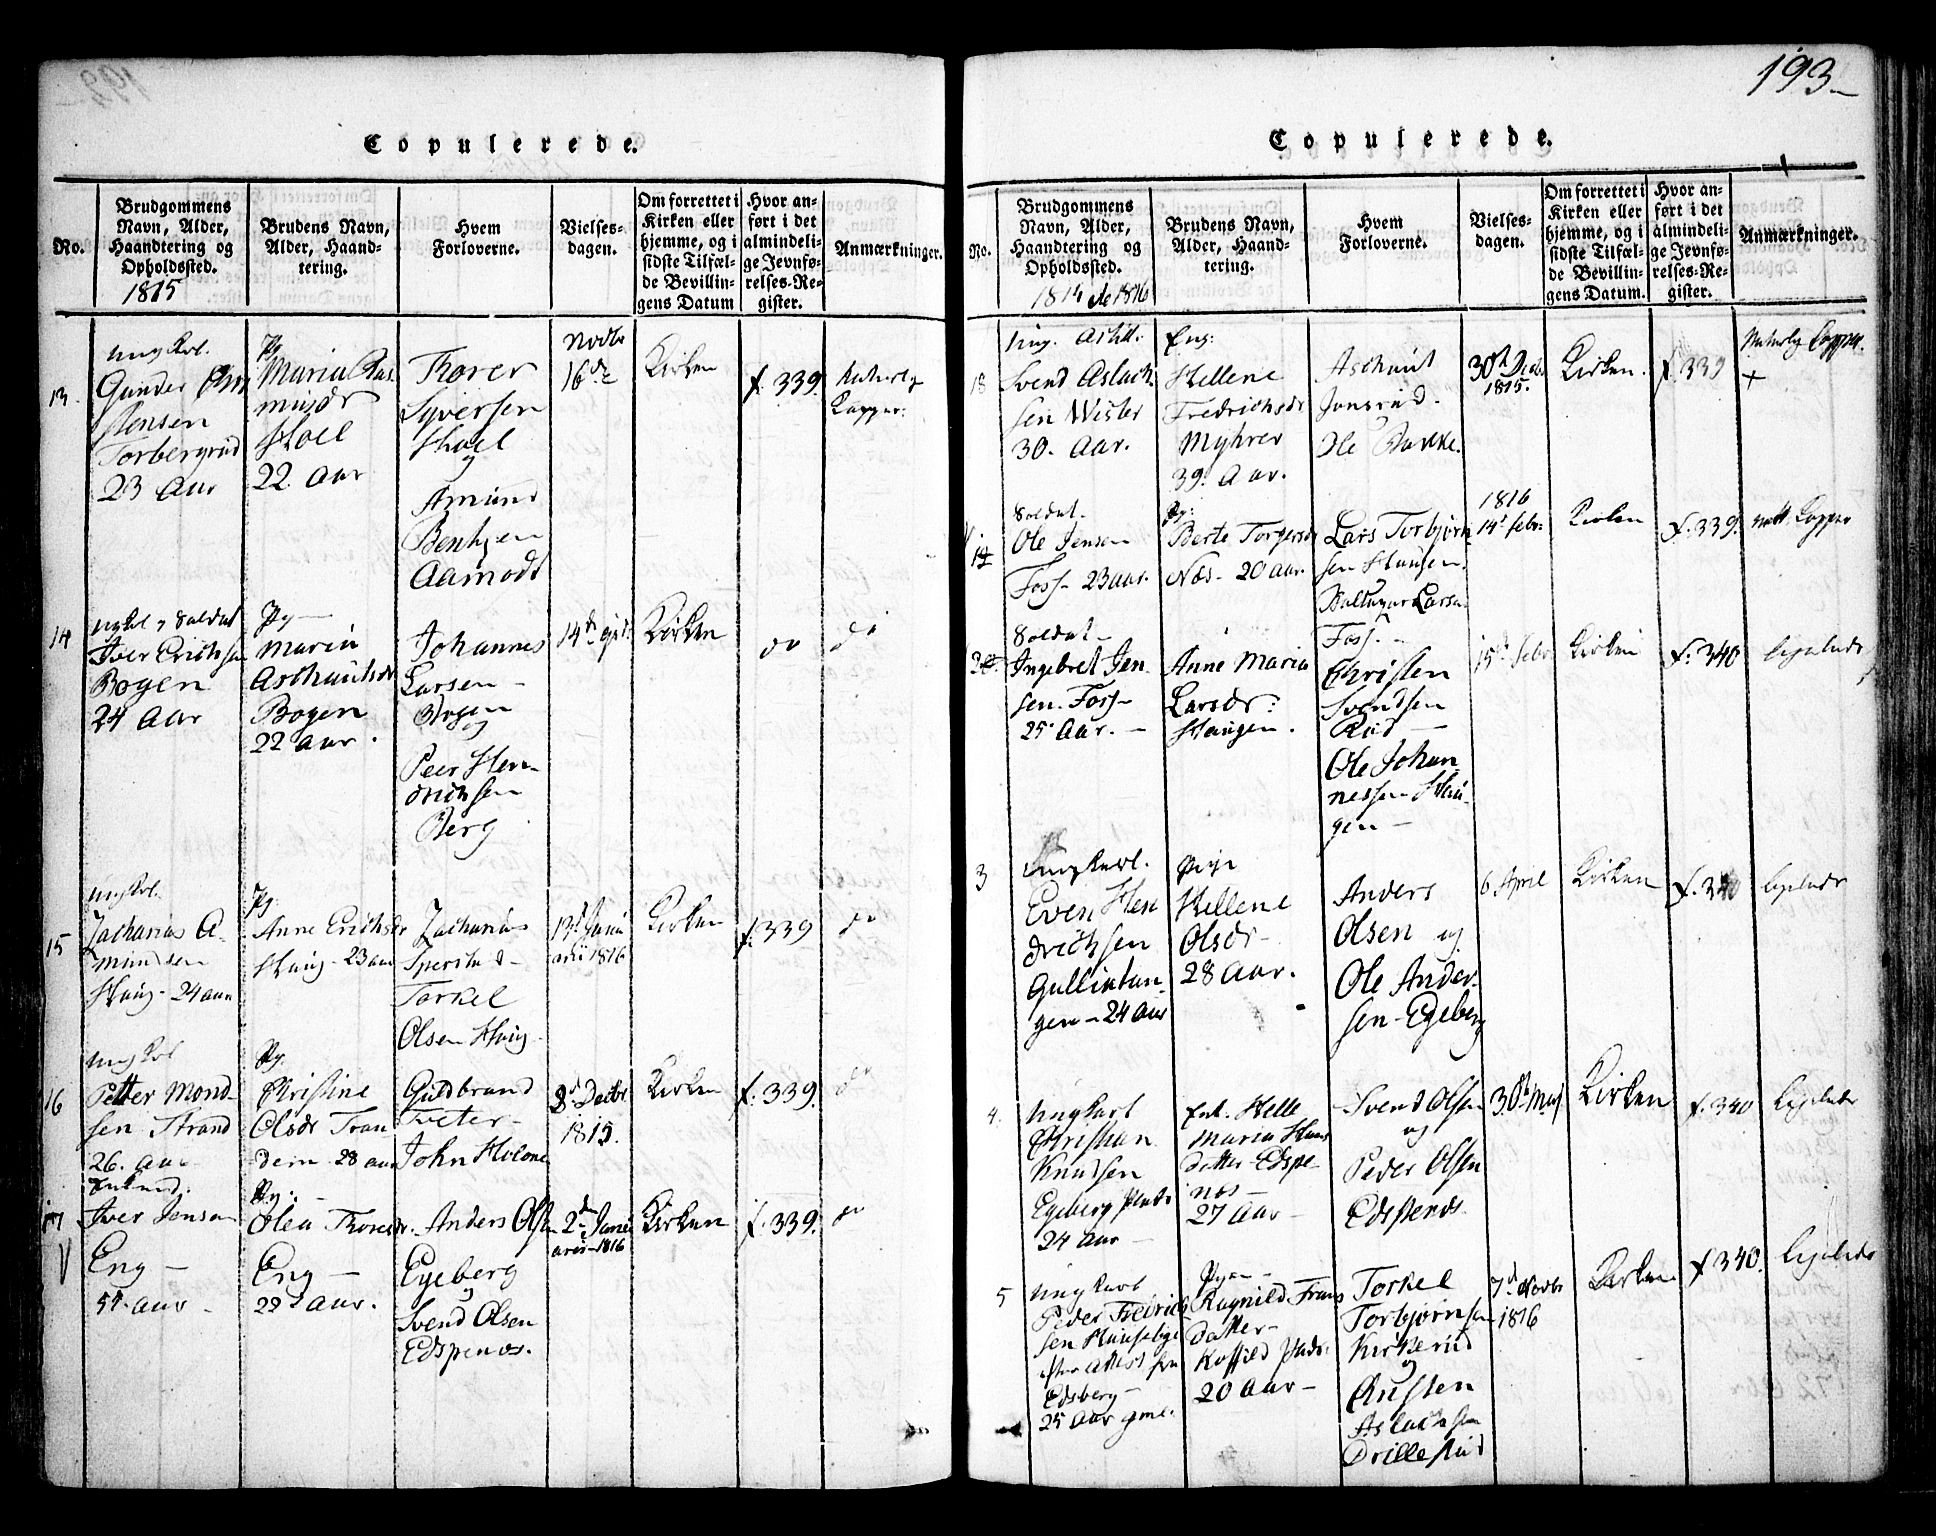 193
Copulerede.
No.
Brudgommens
Navn, Alder,
Haandtering og
Opholdssted.
1815
Brudens Navn,
Alder, Haand-
tering.
Hvem
Forloverne.
Vielses-
dagen.
Om forrettet i
Kirken eller
hjemme, og i
sidste Tilfæl-
de Bevillin-
gens Datum
Hvor an-
ført i det
almindeli-
ge Jevnfø-
relses-Re-
gister.
Anmærkninger.
13.
Gunder
Torbergrud
23 Aar
Py
Maria Ras
Hoel
22 Aar
Thorer
Syversen
Hoel
Amund
Aamodt
Novbr
16de
Kirken
f. 339.
Kopper.
14
Ungkl & Soldat
Iver Erichsen
Bogen
24 Aar
Py
Maria
Bogen
22 Aar.
Johannes
Larsen
Bogen
og
Peer Hen-
drichsen
Berg
14de
Kirken
do
do
15
Ungkl.
Zacharias A-
mundsen
Haug - 24 aar
Py.
Anne Erichsdr
Haug - 23 aar
Zacharias
Sperstad
Torkel
Olsen Haug
13de Janu
arii 1816
Kirken
f. 339
do
16
Ungkl
Petter Mond-
sen Strand
26. aar
Py.
Christine
Olsdr Tran-
dem 28 aar
Guldbrand
Tveter
John Holone
8de Decbr
1815.
Kirken
f. 339.
do
17
Enkemd.
Iver Jensen
Eng
Py.
Olea Thoresdr.
Eng
22 aar.
Anders Olsen
Egeberg
og
Svend Olsen
Edspenæs.
2de Janu
arii 1816
Kirken
f. 339.
do
193
Copulerede.
No.
Brudgommens
Navn, Alder,
Haandtering og
Opholdssted.
1815 de 1816
Brudens Navn,
Alder, Haand-
tering.
Hvem
Forloverne.
Vielses-
dagen.
Om forrettet i
Kirken eller
hjemme, og i
sidste Tilfæl-
de Bevillin-
gens Datum.
Hvor an-
ført i det
almindeli-
ge Jevnfø-
relses-Re-
gister.
Anmærkninger.
18
Svend Aslach
sen Wister
30. Aar.
Enk:
Hellene
Fredrichsdr
Myhrer
39. Aar.
Jonsrud.
Ole Bakke.
30te Decbr
1815.
Kirken.
f. 339
Naturlig Kopper.
+
Soldat.
Ole Jensen
Foss - 23 aar.
Py:
Berte Torgersdr
Næs - 20 aar.
Lars Torbjørn
sen Haugen.
Baltzar Larsen
Foss. -
1816
14de febr:
Kirken
f. 339.
natl. Kopper
Soldat
Ingebret Jen-
sen Foss
25 Aar.
Anne Maria
Larsdr:
Haugen.
Christen
Svendsen
Rud
Ole Johan-
nessen Hau-
gen
15de febr
Kirken
f. 340
ligeledes
3
Ungkarl.
Even Hen
drichsen
Gullixtan-
gen - 24 Aar
Pige
Hellene
Olsdr
28 Aar.
Anders
Olsen og
Ole Ander-
sen Egeberg
6 April
Kirken
f. 340
ligeledes
4.
Ungkarl
Christian
Knudsen
Egeberg Plads
24 Aar
Enk. Helle
Maria Hans
datter Edspe-
næs
27 Aar
Svend Olsen
og
Peder Olsen
Edspenæs.
30te Maj
Kirken
f. 340
Ligeledes
5
Ungkarl
Peder Fredrich-
sen
Edsberg
25 Aar gml.
Pige
Ragnild Frans
datter
20 Aar
Torkel
Torbjørnsen
Kirkerud
og
Christen
Aslachsen
Drillerud
7de Novbr
1816
Kirken
f 340.
ligeledes